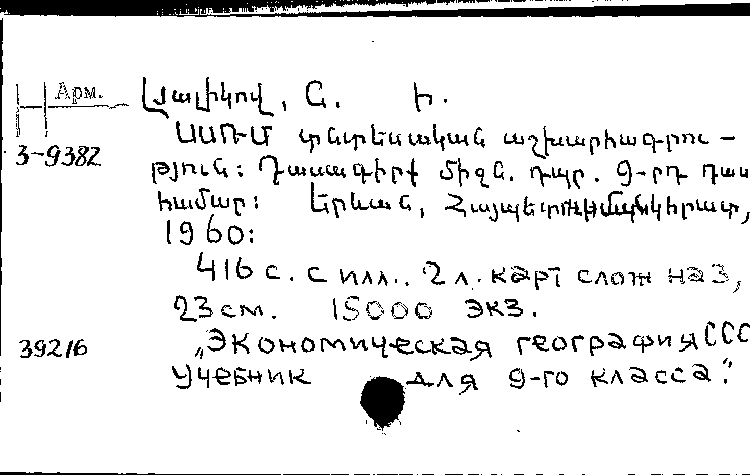 Арм.
Լյալիկով, Ն. Ի.
3-9382
ՍՍՌՄ տնտեսական աշխարհագրու-
թյուն: Դասագիրք միջն. դպր. 9-րդ դաս
համար: Երևան, Հայպետուսմանկհրատ,
1960:
416 с. с илл., 2 л. карт слож на 3,
23 см. 15000 экз.
39216
„Экономическая география ССС
Учебник для 9-го класса".